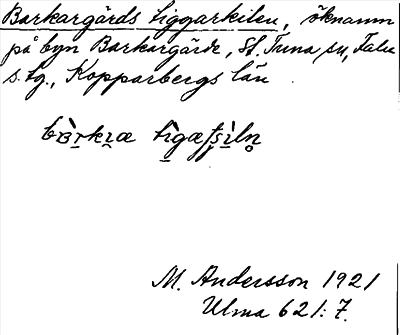 Barkargårds tiggarkilen, öknamn
på byn Barkargärde, St. Tuna sn, Falu
s. tg., Kopparbergs län.
M. Andersson 1921
Ulma 621: 7.